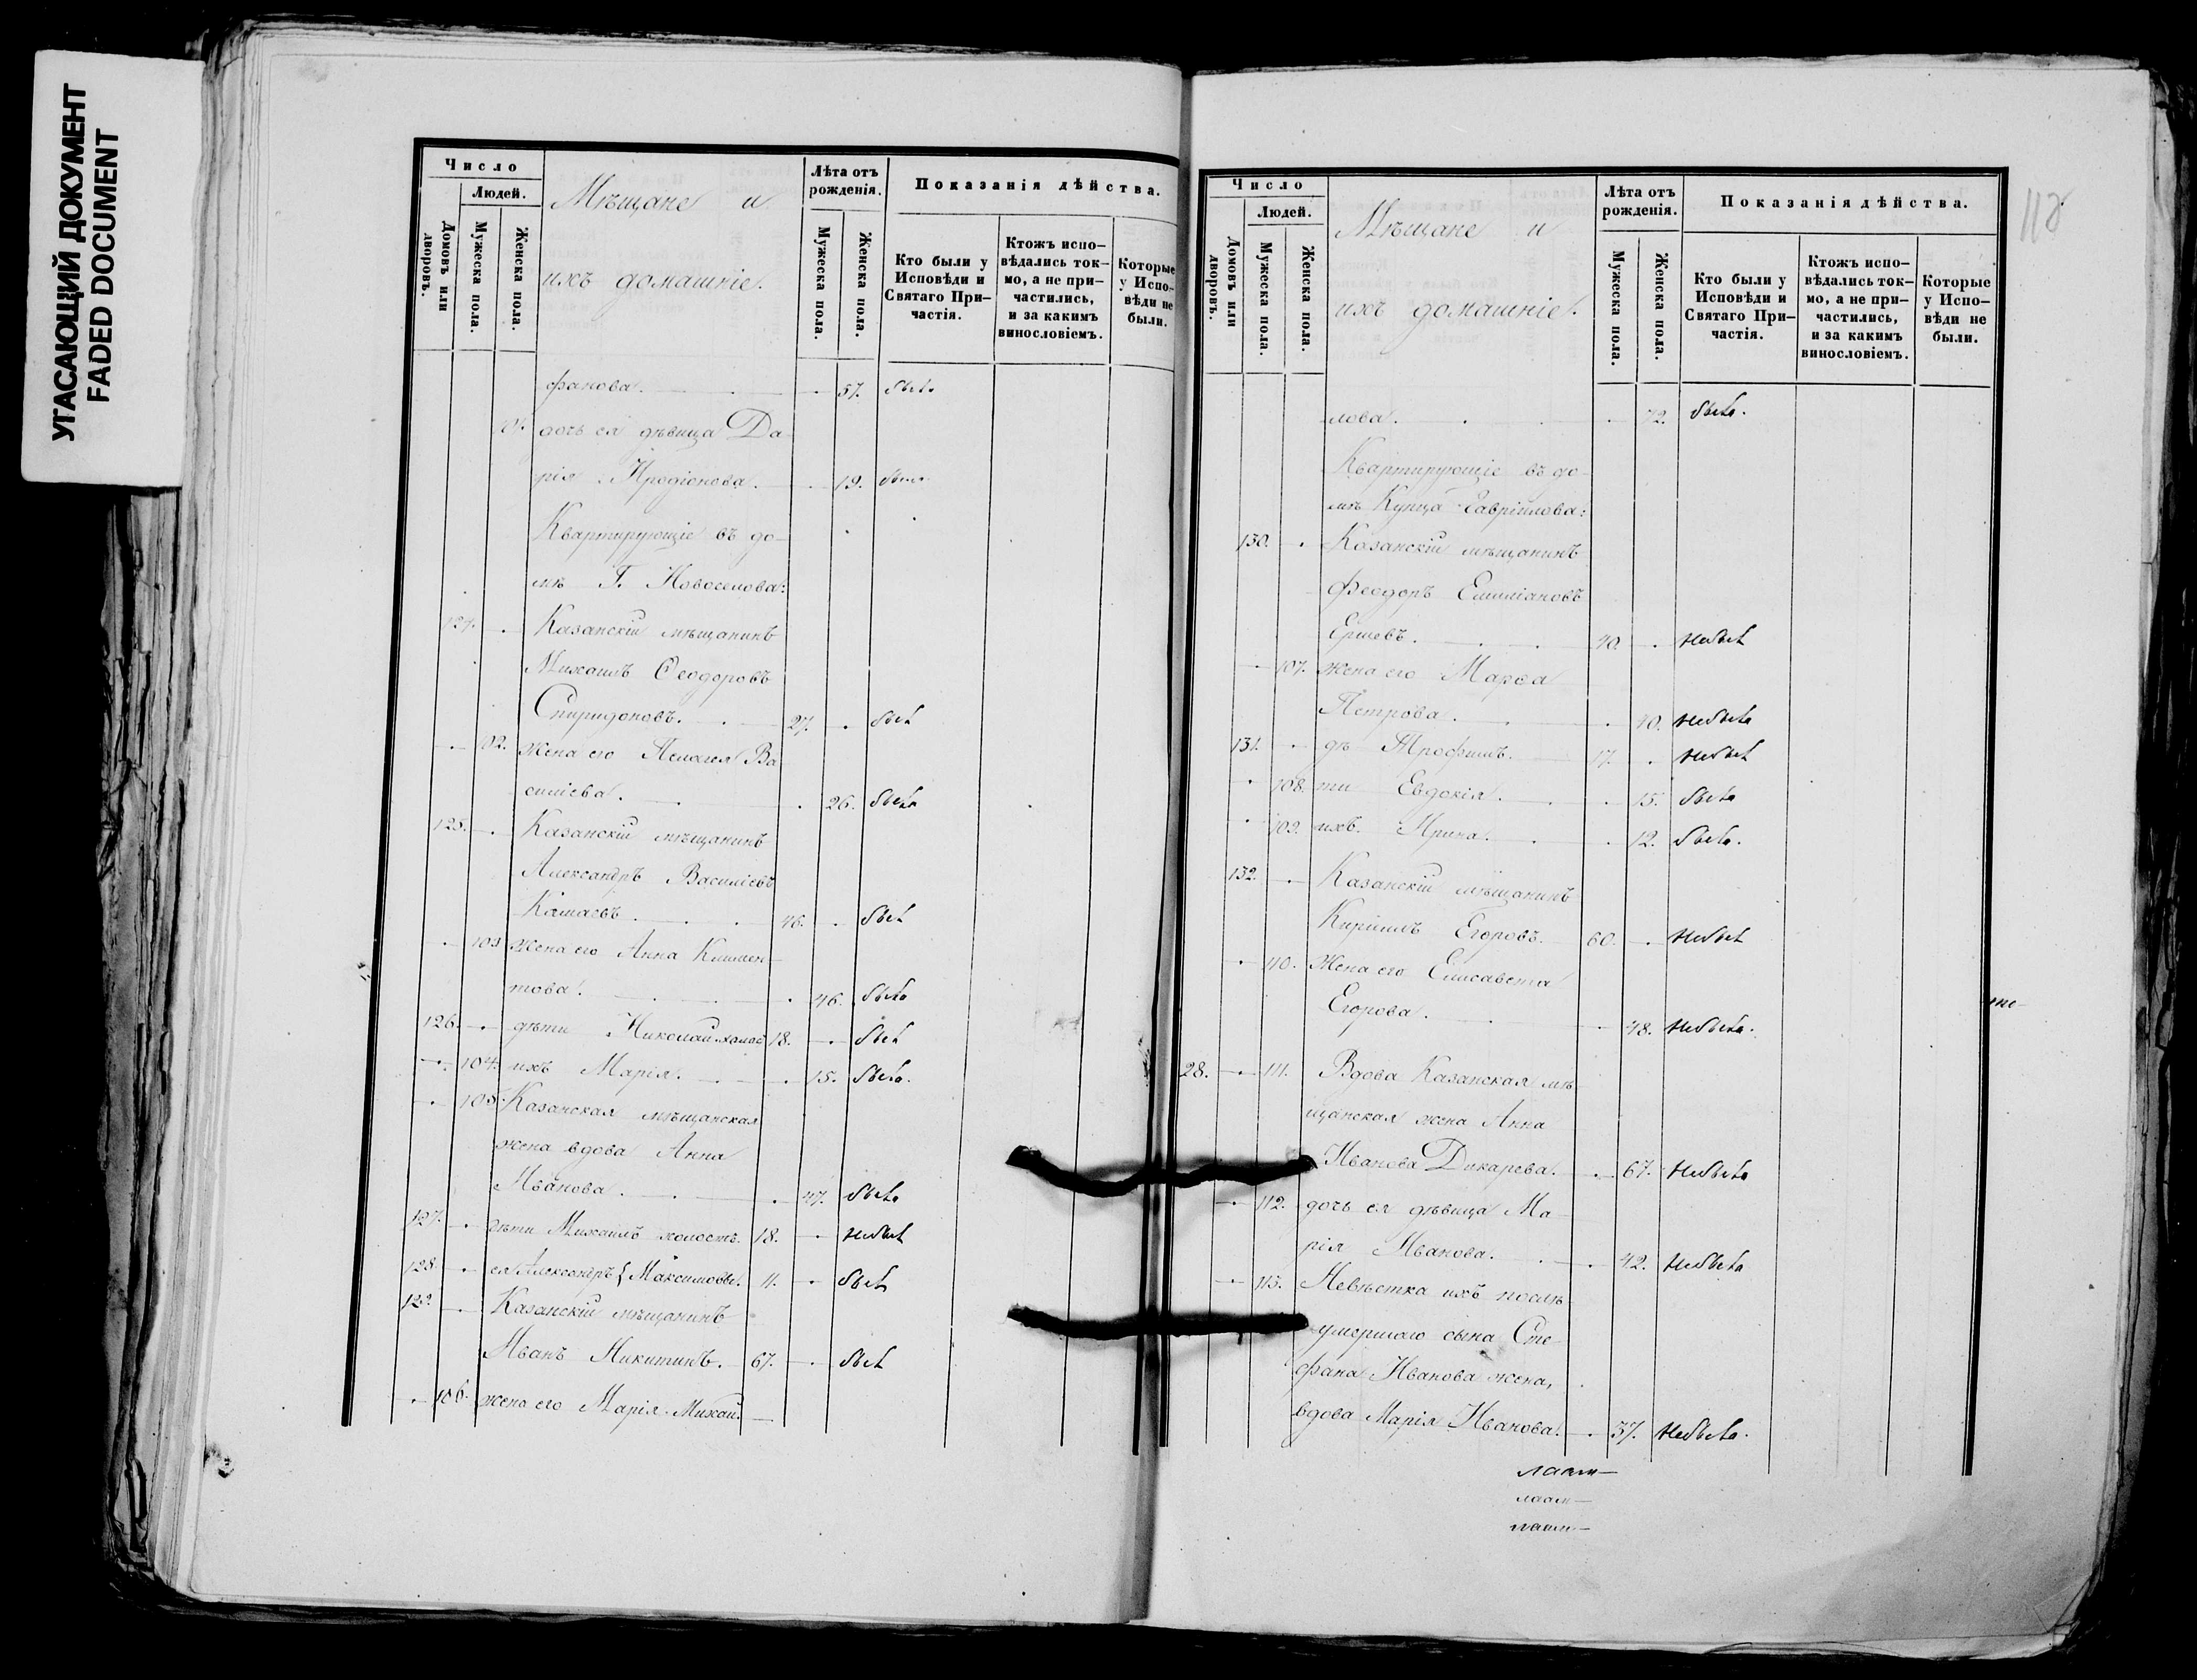 УГАСАЮЩИЙ ДОКУМЕНТ
FADED DOCUMENT
Число
Людей.
Домовъ или дворовъ.
Мужеска пола.
Женска пола.
Мѣщане и
ихъ домашніе.
Лѣта отъ рожденія.
Мужеска пола.
Женска пола.
Показанія дѣйства.
Кто были у Исповѣди и Святаго При-частія.
Ктожъ испо-вѣдались ток-мо, а не при-частились, и за какимъ винословіемъ.
Которые у Испо-вѣди не были.
фанова. 57. была
101. дочь ея дѣвица Да-
рія Иродіонова. 19. была
Квартирующіе въ до-
мѣ Г. Новоселова:
124. Казанскій мѣщанинъ
Михаилъ Ѳеодоровъ
Спиридоновъ. 27. былъ
102. жена его Пелагея Ва
силіева. 26. была
125. Казанскій мѣщанинъ
Александръ Василіевъ
46. былъ
103 жена его Анна Климен-
това. 46. была
126. дѣти Николай холос 18. былъ
104. ихъ Марія. 15. была.
105. Казанская мѣщанская
жена вдова Анна
Иванова. 47. была
127. дѣти Михаилъ холостъ. 18. небылъ
128. ея Александръ } Максимовы. 11. былъ
129. Казанскій мѣщанинъ
Иванъ Никитинъ. 67. былъ
106. жена его Марія Михай-
118
Число
Людей.
Домовъ или дворовъ.
Мужеска пола.
Женска пола.
Мѣщане и
ихъ домашніе.
Лѣта отъ рожденія.
Мужеска пола.
Женска пола.
Показанія дѣйства.
Кто были у Исповѣди и Святаго При-частія.
Ктожъ испо-вѣдались ток-мо, а не при-частились, и за какимъ винословіемъ.
Которые у Испо-вѣди не были.
лова. 72. была.
Квартирующіе въ до-
мѣ Купца Гавріилова:
130. Казанскій мѣщанинъ
Феодоръ Емиліановъ
Ершевъ. 40. небылъ
107. жена его Марѳа
Петрова. 40. небыла
131. дѣ Трофимъ. 17. небылъ
108. ти Евдокія. 15. была
109. ихъ. Ирина. 12. была.
132. Казанскій мѣщанинъ
Кириллъ Егоровъ. 60. небылъ
40. Жена его Елисавета
Егорова. 48. небыла.
28. 111. Вдова Казанская мѣ
щанская жена Анна
Иванова Дикарева. 67. небыла
112. дочь ея дѣвица Ма-
рія Иванова. 42. небыла
113. Невѣстка ихъ послѣ
умершаго сына Сте
фана Иванова жена,
вдова Марія Иванова. 37. небыла.